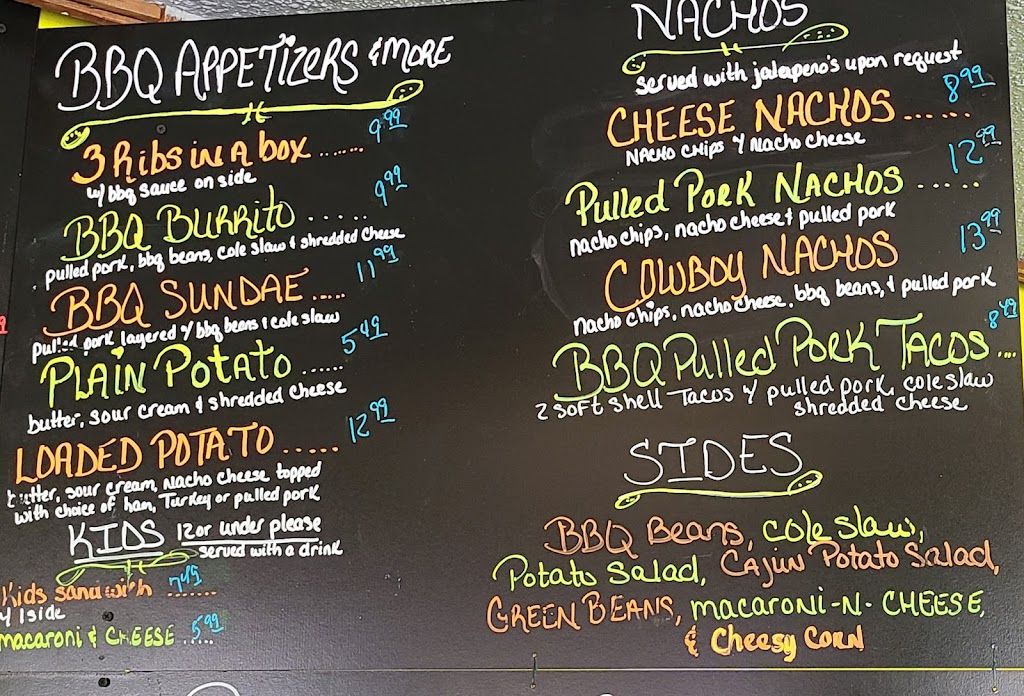 BBQ APPETIZERS & MORE
3 Ribs in A box ...... 9.99
w/ bbq sauce on side
BBQ BURRITO ..... 9.99
pulled pork, bbq beans, cole slaw & shredded cheese
BBQ SUNDAE ..... 11.99
pulled pork layered w/ bbq beans & cole slaw
PLAIN POTATO ..... 5.49
butter, sour cream & shredded cheese
LOADED POTATO ..... 12.99
butter, sour cream, nacho cheese topped
with choice of ham, Turkey or pulled pork
KIDS 12 or under please
served with a drink
Kids sandwich ....... 7.49
w/ 1 side
macaroni & CHEESE ..... 5.99
NACHOS
served with jalapeno's upon request
CHEESE NACHOS ...... 8.99
NACHO CHIPS & Nacho cheese
Pulled PORK NACHOS ..... 12.99
nacho chips, nacho cheese & pulled pork
COWBOY NACHOS 13.99
nacho chips, nacho cheese, bbq beans, & pulled pork
BBQ Pulled PORK TACOS .... 8.49
2 soft shell Tacos w/ pulled pork, cole slaw
shredded cheese
SIDES
BBQ Beans, cole slaw,
Potato Salad, CAJUN Potato Salad,
GREEN BEANS, macaroni-N-CHEESE,
& Cheesy CORN